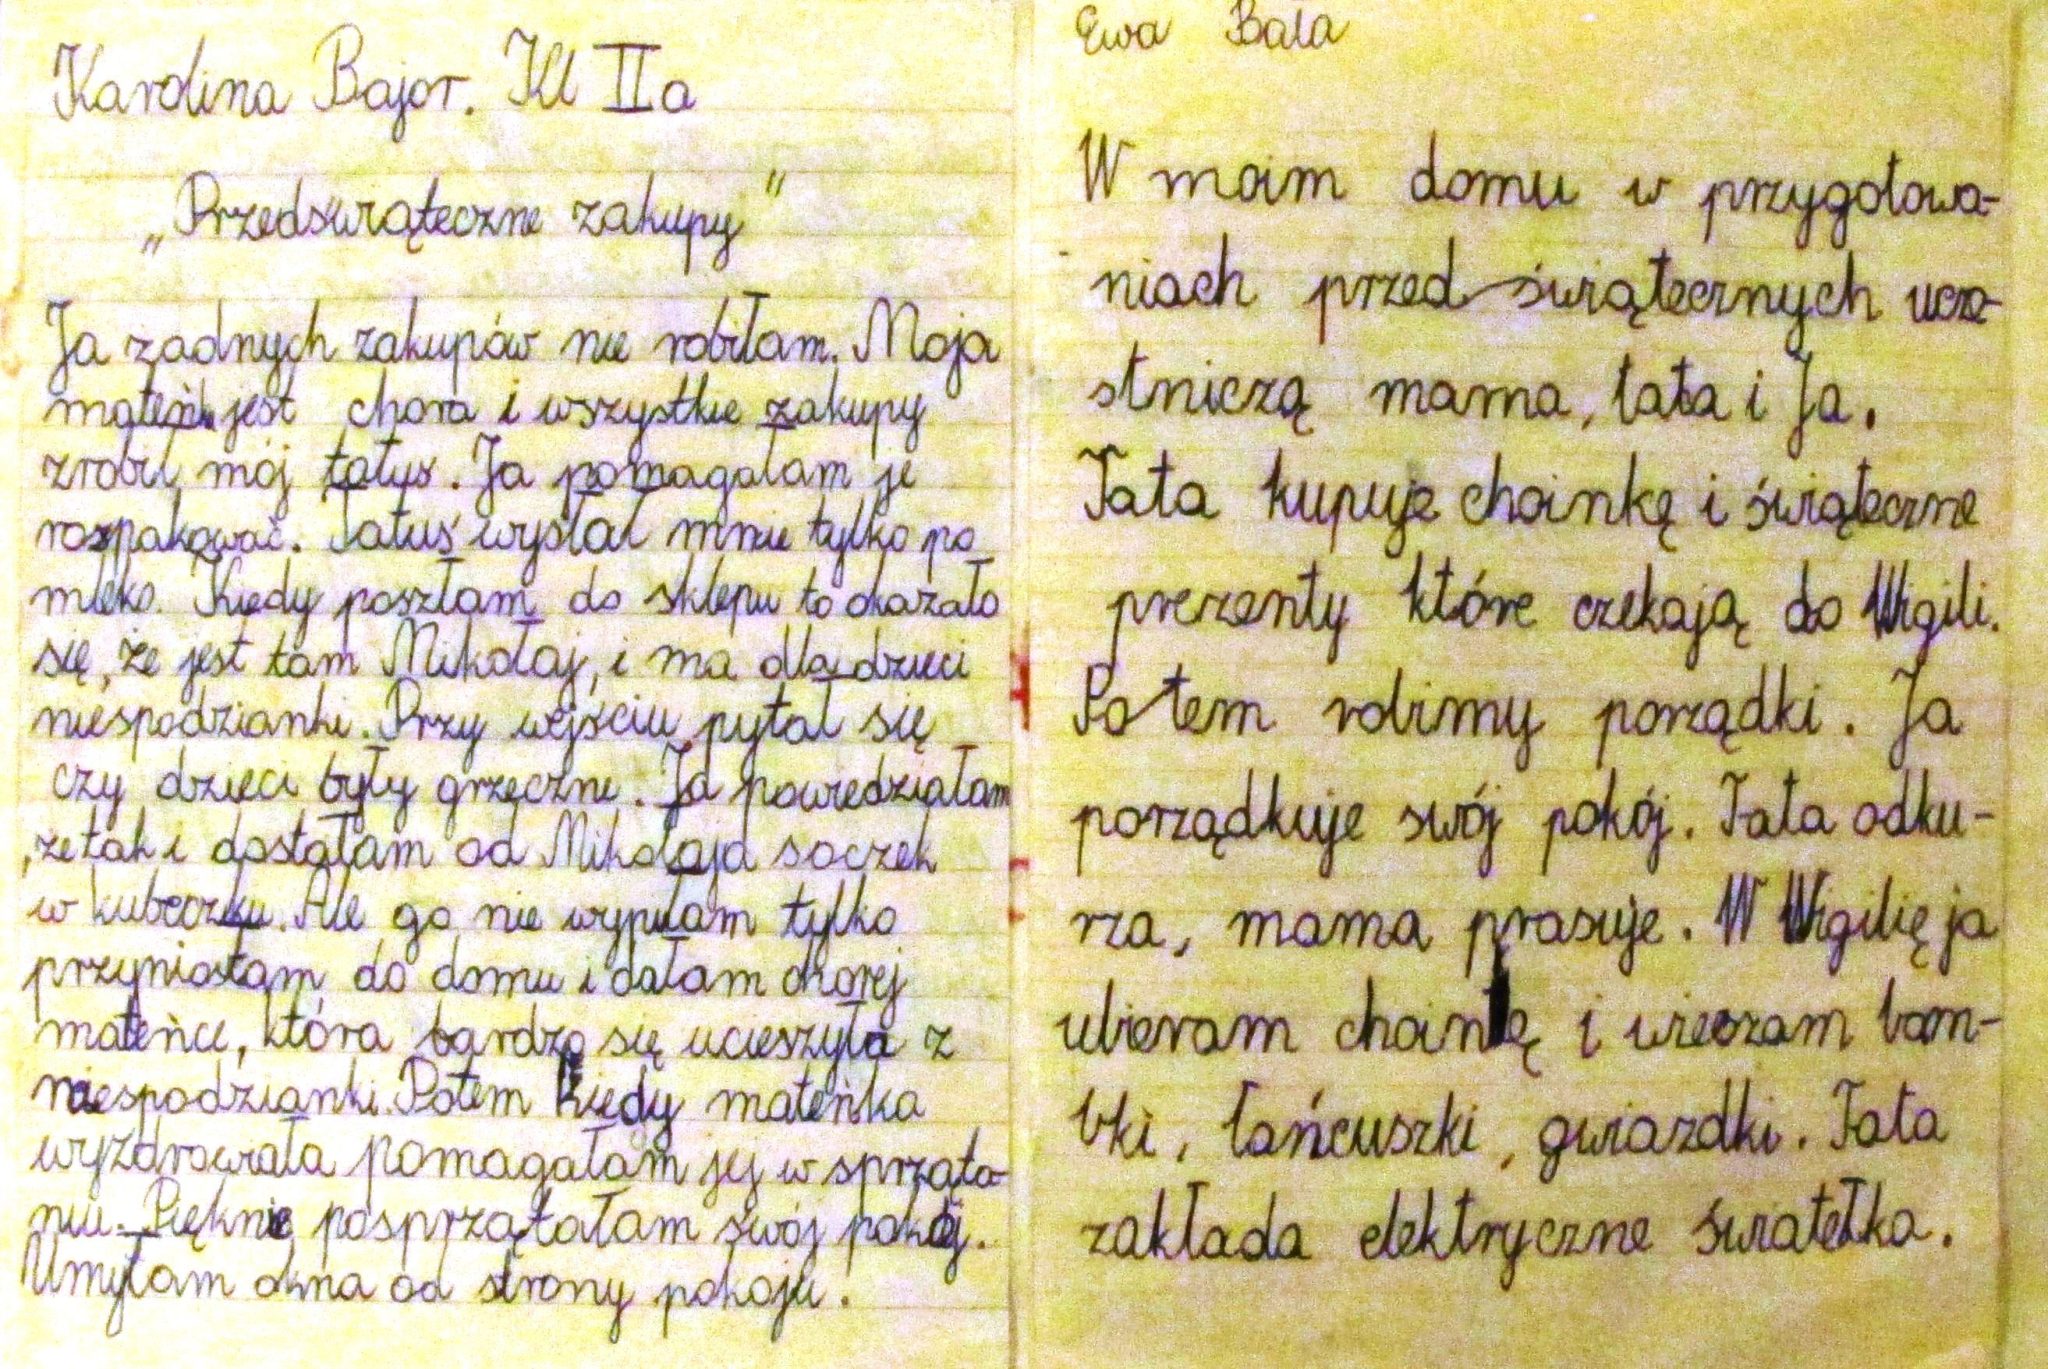 Karolina Bajor. Kl IIa
„Przedświąteczne zakupy"
Ja żadnych zakupów nie robiłam. Moja
mateńka jest chora i wszystkie zakupy
zrobił mój tatuś. Ja pomagałam je
rozpakować. Tatuś wysłał mnie tylko po
mleko. Kiedy poszłam do sklepu to okazało
się, że jest tam Mikołaj, i ma dla dzieci
niespodzianki. Przy wejściu pytał się
czy dzieci były grzeczne. Ja powiedziałam
, że tak i dostałam od Mikołaja soczek
w kubeczku. Ale go nie wypiłam tylko
przyniosłam do domu i dałam chorej
mateńce, która bardzo się ucieszyła z
niespodzianki. Potem kiedy mateńka
wyzdrowiała pomagałam jej w sprząta-
niu. Pięknie posprzątałam swój pokój.
Umyłam okna od strony pokoju.
Ewa Bała
W moim domu w przygotowa-
niach przed świątecznych ucze-
stniczą mama, tata i Ja.
Tata kupuje choinkę i świąteczne
prezenty które czekają do Wigili.
Potem robimy porządki. Ja
porządkuje swój pokój. Tata odku-
rza, mama prasuje. W Wigilię ja
ubieram choinkę i wieszam bom-
bki, łańcuszki, gwiazdki. Tata
zakłada elektryczne światełka.